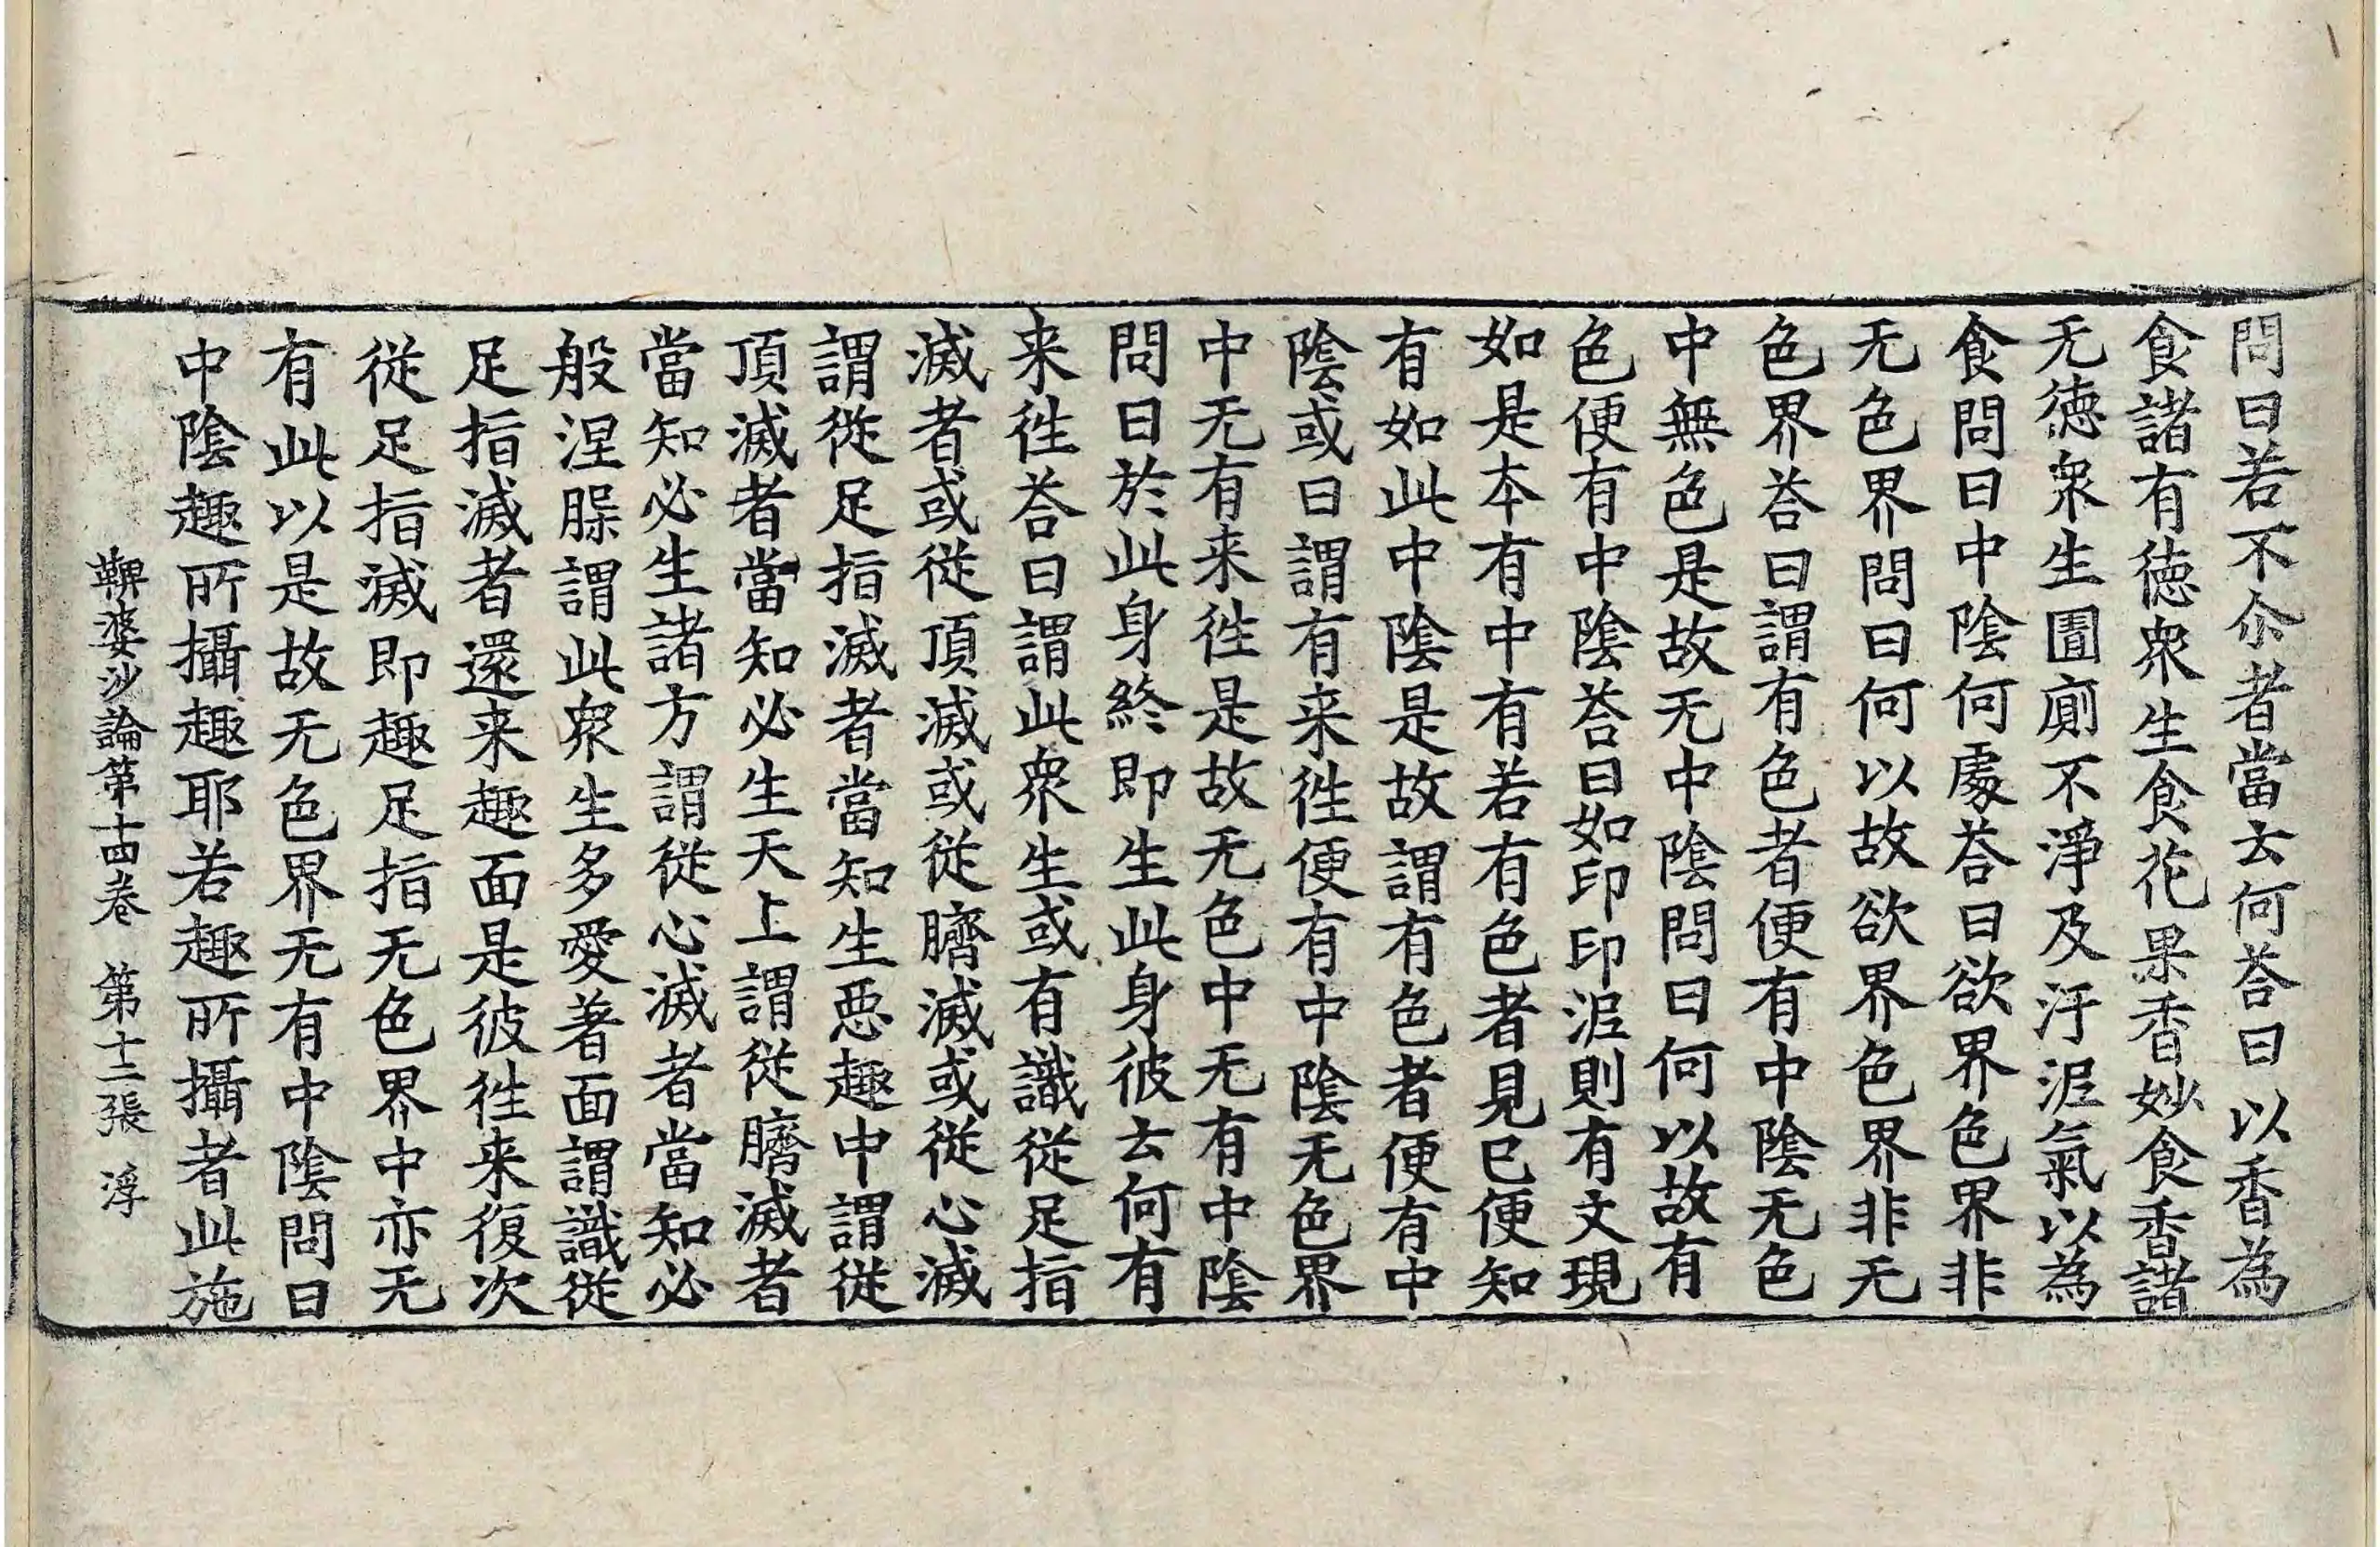 問曰若不尒者當云何荅曰以香為
食諸有德衆生食花果香妙食香諸
无德衆生圊廁不淨及汙泥氣以為
食問曰中陰何處荅曰欲界色界非
无色界問曰何以故欲界色界非无
色界荅曰謂有色者便有中陰无色
中無色是故无中陰問曰何以故有
色便有中陰荅曰如印印泥則有文現
如是本有中有若有色者見已便知
有如此中陰是故謂有色者便有中
陰或曰謂有来徃便有中陰无色界
中无有来徃是故无色中无有中陰
問曰於此身終即生此身彼云何有
来徃荅曰謂此衆生或有識從足指
滅者或從頂滅或從臍滅或從心滅
謂從足指滅者當知生惡趣中謂從
頂滅者當知必生天上謂從臍滅者
當知必生諸方謂從心滅者當知必
般涅腺謂此衆生多愛著面謂識從
足指滅者還来趣面是彼徃来復次
從足指滅即趣足指无色界中亦无
有此以是故无色界无有中陰問曰
中陰趣所攝趣耶若趣所攝者此施
鞞婆沙論第十四卷 第十二張 浮